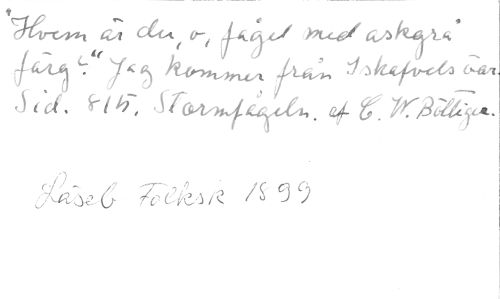 "Hvem är du, o, fågel med askgrå
färg?" Jag kommer från Ishafvets var.
Sid. 815. Stormfågeln. af C. W. Böttiger.
Läseb Folksk 1899